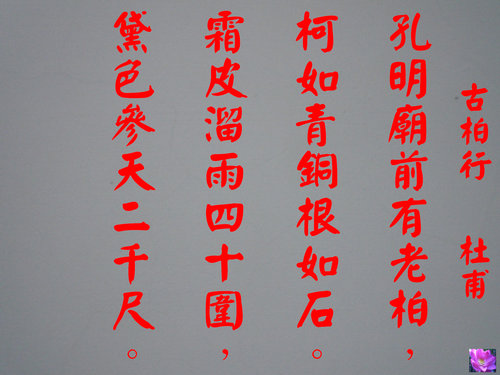 古柏行 杜甫
孔明廟前有老柏，
柯如青銅根如石。
霜皮溜雨四十圍，
黛色參天二千尺。